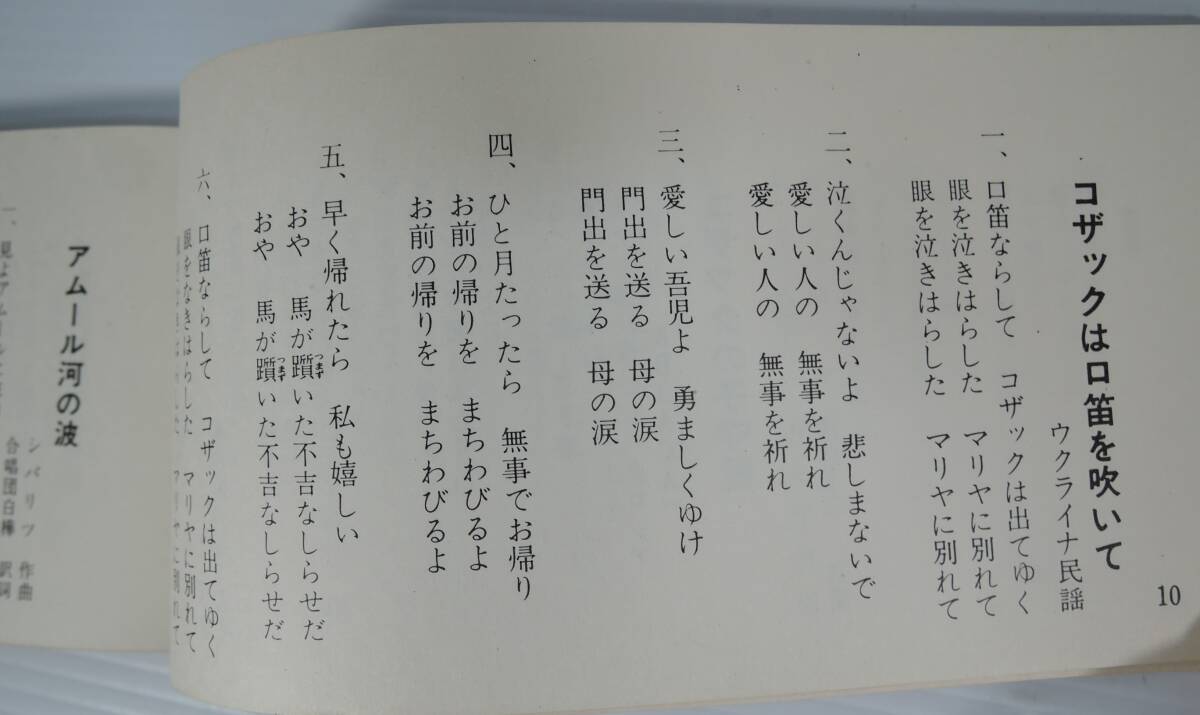 10
コザックは口笛を吹いて
ウクライナ民謡
一、口笛ならして コザックは出てゆく
眼を泣きはらした マリヤに別れて
眼を泣きはらした マリヤに別れて
二、泣くんじゃないよ 悲しまないで
愛しい人の 無事を祈れ
愛しい人の 無事を祈れ
三、愛しい吾児よ 勇ましくゆけ
門出を送る 母の涙
門出を送る 母の涙
四、ひと月たったら 無事でお帰り
お前の帰りを まちわびるよ
お前の帰りを まちわびるよ
五、早く帰れたら 私も嬉しい
おや 馬が躓いた不吉なしらせだ
おや 馬が躓いた不吉なしらせだ
六、口笛ならして コザックは出てゆく
眼をなきはらした マリヤに別れて
マリヤに別れて
アムール河の波
シバリツ 作曲
合唱団白樺 訳詞
一、見よアムールに